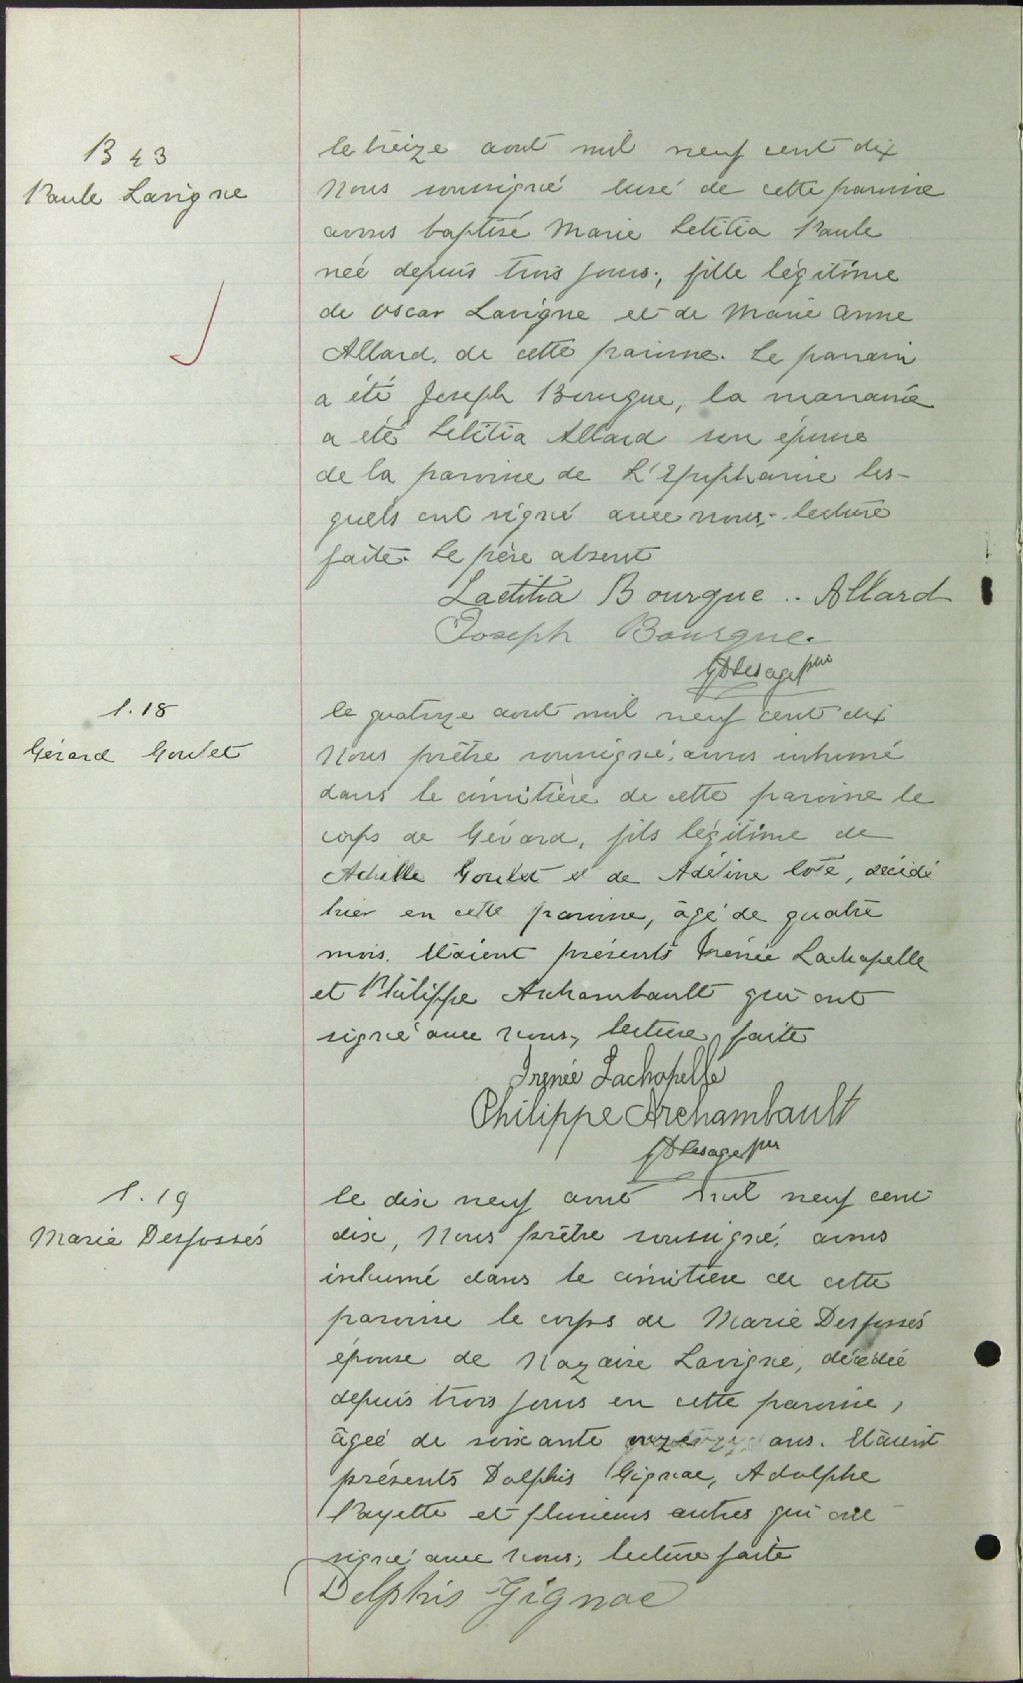 B 43
Paule Lavigne
le treize aout mil neuf cent dix
Nous soussigné curé de cette paroisse
avons baptisé Marie Letitia Paule
née depuis trois jours, fille légitime
de Oscar Lavigne et de Marie Anne
Allard, de cette paroisse. Le parrain
a été Joseph Bourgue, la marraine
a été Letitia Allard son épouse
de la paroisse de L'Epiphanie les-
quels ont signé avec nous, lecture
faite. Le père absent
Laetitia Bourgue .. Allard
Joseph Bourgue.
Lesage ptre
S. 18
Gérard Goulet
le quatorze aout mil neuf cent dix
Nous prêtre soussigné, avons inhumé
dans le cimitière de cette paroisse le
corps de Gérard, fils légitime de
Achille Goulet et de Adéline Coté, décédé
hier en cette paroisse, âgé de quatre
mois. Etaient présents Irénée Lachapelle
et Philippe Archambault qui ont
signé avec nous, lecture faite
Irenée Lachapelle
Philippe Archambault
Lesage ptre
S. 19
Marie Desfossés
le dix neuf aout mil neuf cent
dix, Nous prêtre soussigné, avons
inhumé dans le cimitière de cette
paroisse le corps de Marie Desfossés
épouse de Nazaire Lavigne, décédée
depuis trois jours en cette paroisse,
âgée de soixante onze ans. Etaient
présents Dolphis Gignac, Adolphe
Payette et plusieurs autres qui ont
signé avec nous, lecture faite
Delphis Gignac